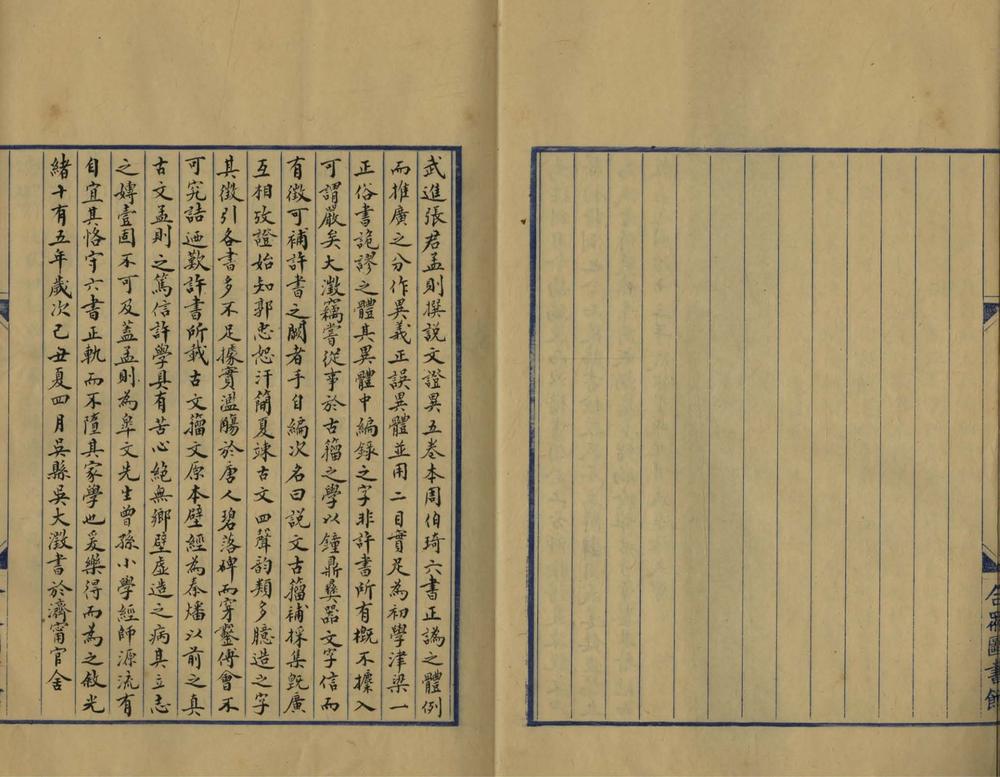 武進張君孟則撰說文證異五卷本周伯琦六書正譌之體例
而推廣之分作異義正誤異體並用二目實足為初學津梁一
正俗書詭謬之體其異體中編錄之字非許書所有概不攗入
可謂嚴矣大澂竊嘗從事於古籀之學以鐘鼎彝器文字信而
有徵可補許書之闕者手自編次名曰說文古籀補採集旣廣
互相攷證始知郭忠恕汗簡夏竦古文四聲韵類多臆造之字
其徵引各書多不足據實濫觴於唐人碧落碑而穿鑿傅會不
可究詰迺歎許書所載古文籀文原本壁經為秦燔以前之真
古文孟則之篤信許學具有苦心絕無鄉壁虛造之病其立志
之嫥壹固不可及蓋孟則為皋文先生曾孫小學經師源流有
自宜其恪守六書正軌而不墮其家學也爰樂得而為之敘光
緒十有五年歲次己丑夏四月吳縣吳大澂書於濟甯官舍
圖書館